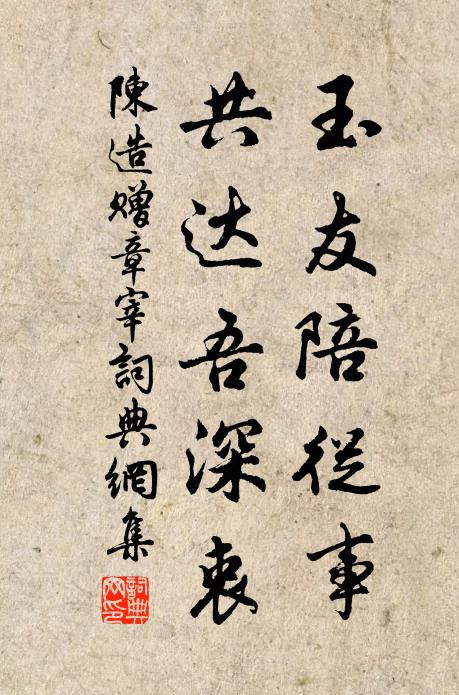 玉友陪從事
共达吾深衷
陳造赠章宰詞典網集
詞典网印